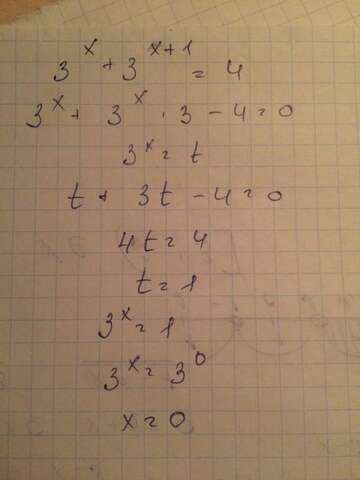 3^x + 3^{x+1} = 4
3^x + 3^x · 3 - 4 = 0
3^x = t
t + 3t - 4 = 0
4t = 4
t = 1
3^x = 1
3^x = 3^0
x = 0